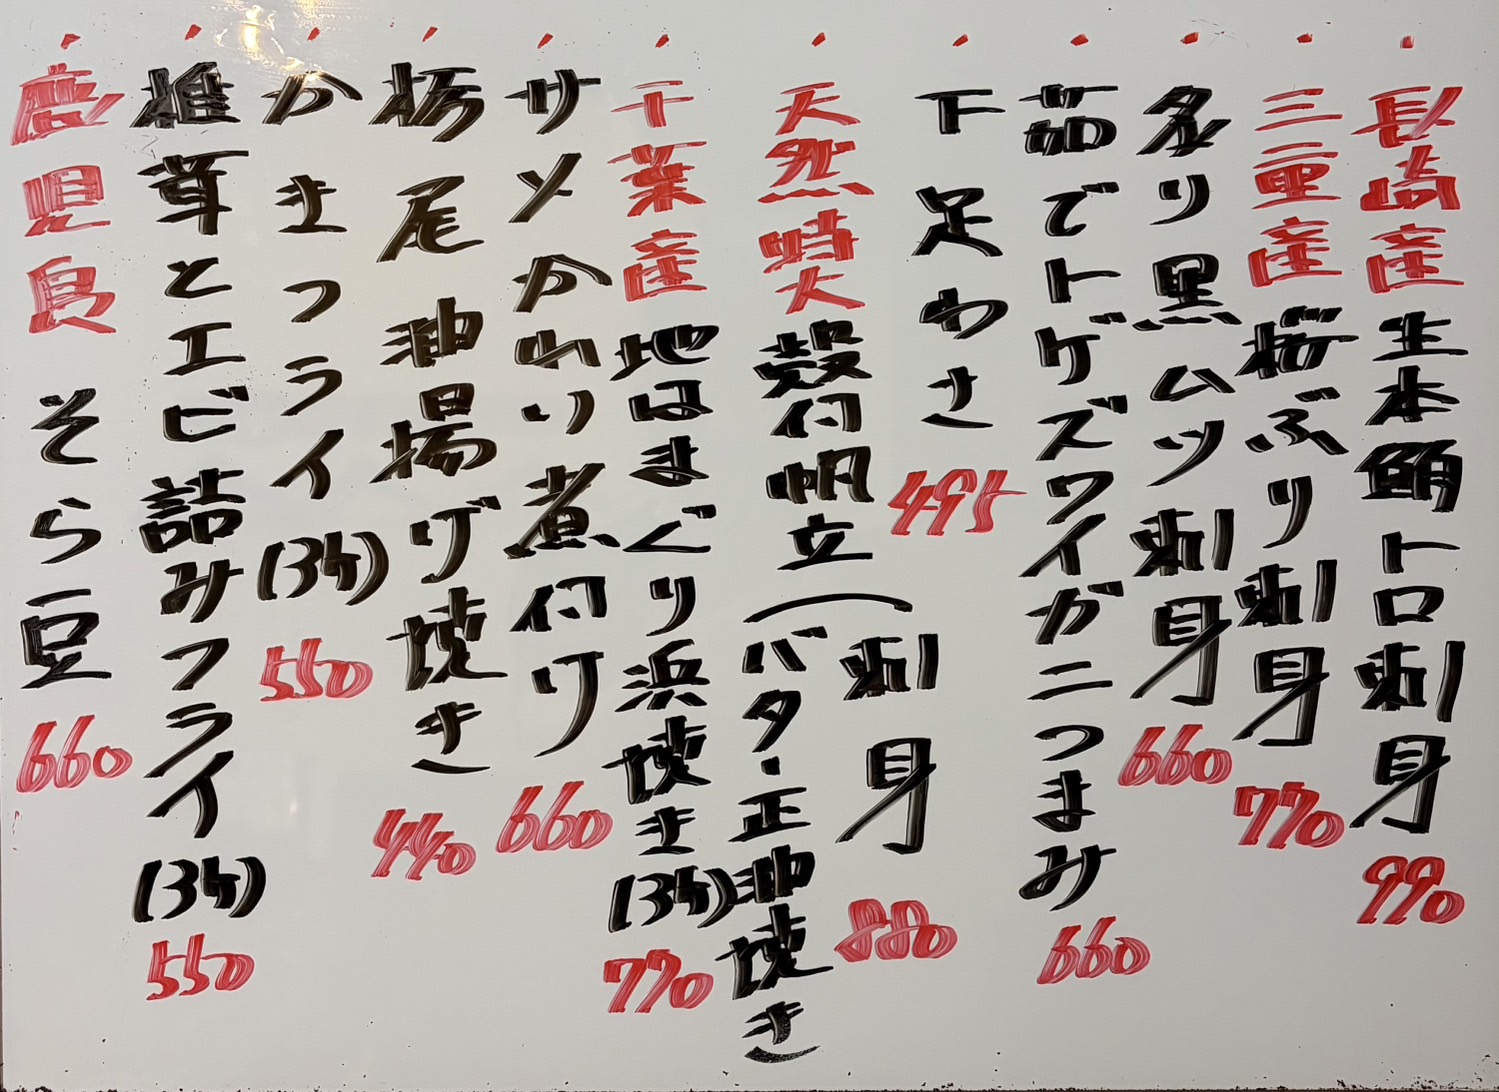 ・長崎産生本鮪トロ刺身 990
・三重産桜ぶり刺身 770
・炙り黒ムツ刺身 660
・茹でトゲズワイガニつまみ 660
・下足わさ 495
・天然特大殻付帆立(刺身 880
バタ・正油焼き
・千葉産地はまぐり浜焼き(3ケ) 770
・サメかれい煮付け 660
・栃尾油揚げ焼き 440
・かきフライ(3ケ) 550
・椎茸とエビ詰みフライ(3ケ) 550
・鹿児島そら豆 660